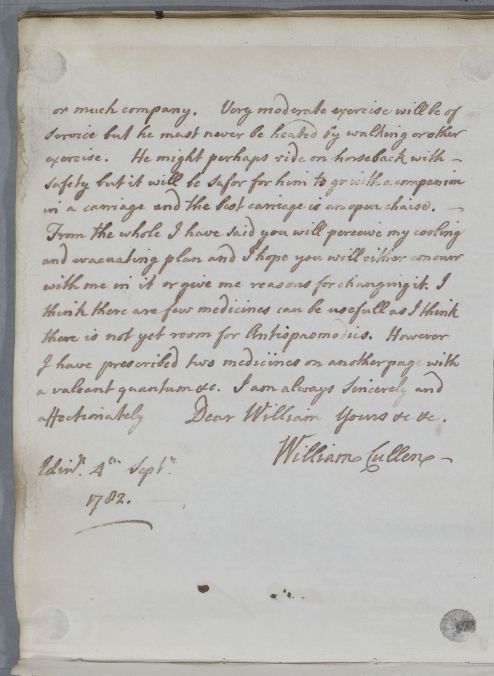 or much company. Very moderate exercise will be of
service but he must never be heated by walking or other
exercise. He might perhaps ride on horseback with
safety but it will be safer for him to go with a companion
in a carriage and the best carriage is an open chaise.
From the whole I have said you will perceive my cooling
and evacuating plan and I hope you will either concurr
with me in it or give me reasons for changing it. I
think there are few medicines can be usefull as I think
there is not yet room for Antispasmodics. However
I have prescribed two medicines on another page with
a valeant quantum &c. I am always Sincerely and
affectionately Dear William Yours &c &c.
William Cullen
Edinr. 4th Septr.
1782.